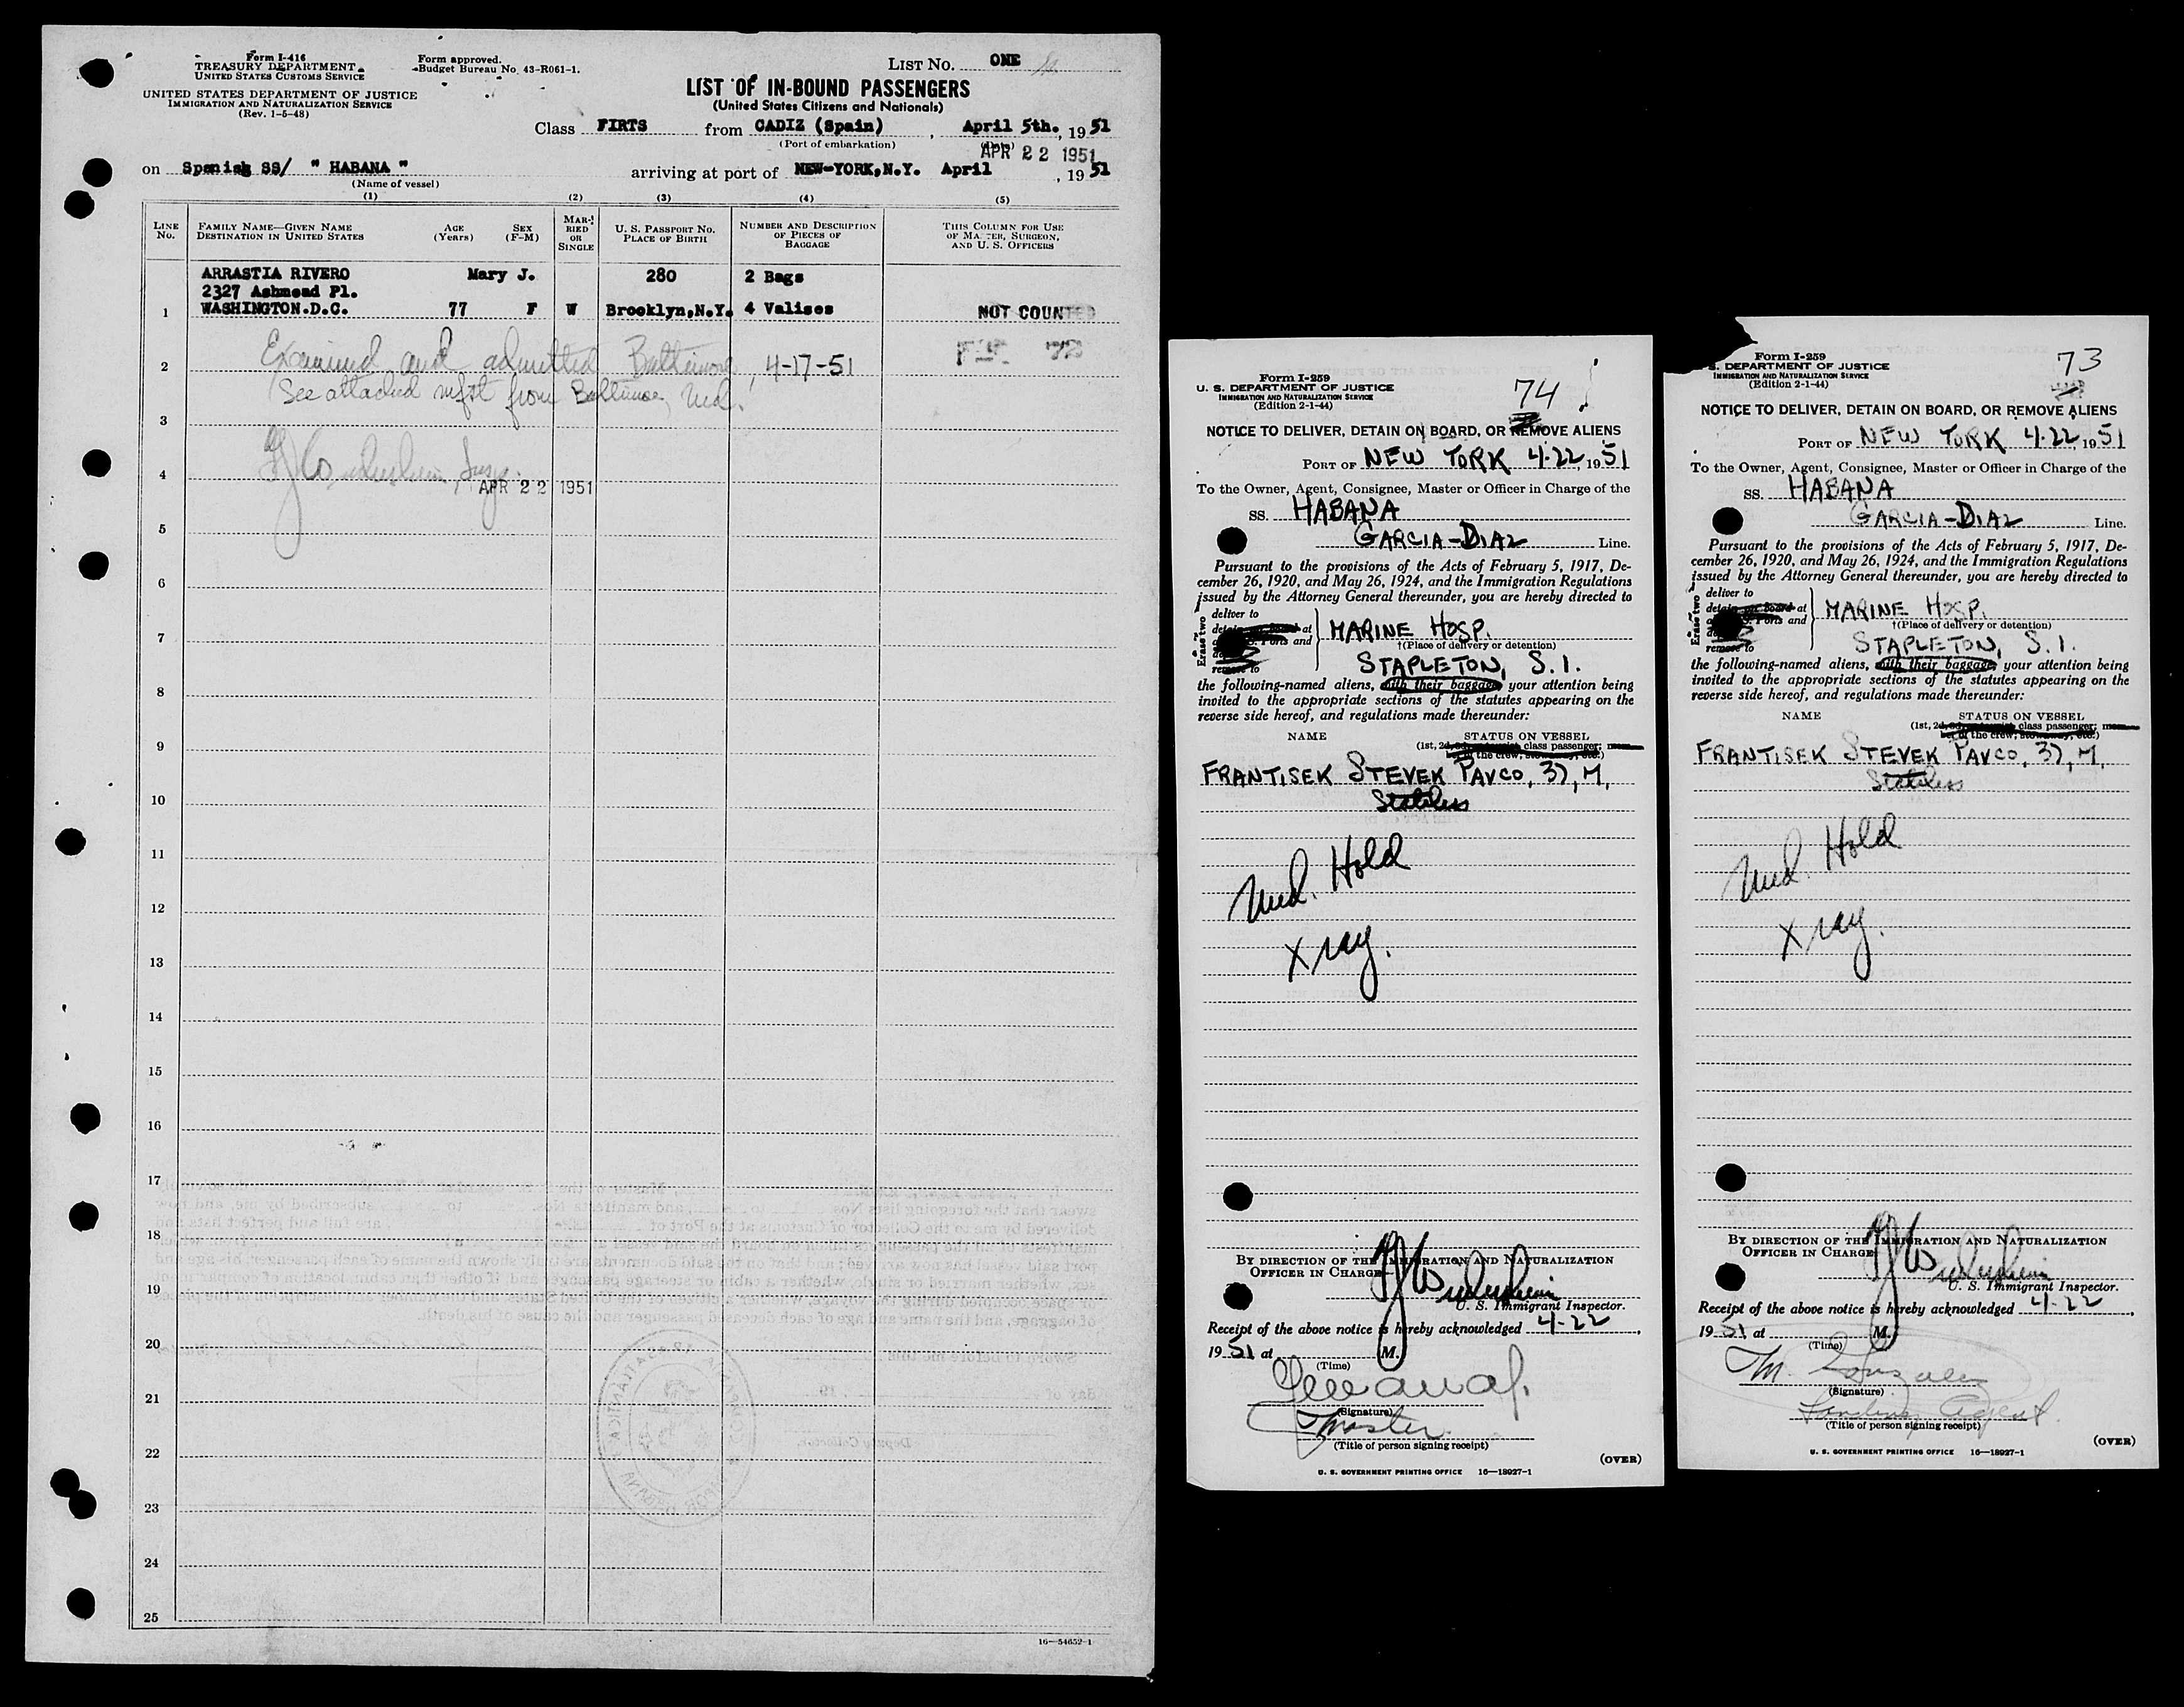 Form I-416
TREASURY DEPARTMENT
UNITED STATES CUSTOMS SERVICE
UNITED STATES DEPARTMENT OF JUSTICE
IMMIGRATION AND NATURALIZATION SERVICE
(Rev. 1-5-48)
Form approved.
Budget Bureau No. 43-R061-1.
LIST NO. ONE
LIST OF IN-BOUND PASSENGERS
(United States Citizens and Nationals)
Class FIRTS from CADIZ (Spain), April 5th., 1951
(Port of embarkation) (Date)
APR 22 1951
on Spanish SS/ " HABANA " arriving at port of NEW-YORK,N.Y. April , 1951
(Name of vessel)
(1) (2) (3) (4) (5)
LINE No.
FAMILY NAME—GIVEN NAME
DESTINATION IN UNITED STATES
AGE (Years)
SEX (F-M)
MARRIED OR SINGLE
U. S. PASSPORT NO.
PLACE OF BIRTH
NUMBER AND DESCRIPTION OF PIECES OF BAGGAGE
THIS COLUMN FOR USE OF MASTER, SURGEON, AND U. S. OFFICERS
ARRASTIA RIVERO Mary J. 280 2 Bags
2327 Ashmead Pl.
1 WASHINGTON.D.C. 77 F W Brooklyn,N.Y. 4 Valises NOT COUNTED
2 Examined and admitted Baltimore, 4-17-51
See attached mfst from Baltimore, Md.
3
4 Insp.
APR 22 1951
5
6
7
8
9
10
11
12
13
14
15
16
17
18
19
20
21
22
23
24
25
16—54652-1
Form I-259
U. S. DEPARTMENT OF JUSTICE
IMMIGRATION AND NATURALIZATION SERVICE
(Edition 2-1-44)
74
NOTICE TO DELIVER, DETAIN ON BOARD, OR REMOVE ALIENS
PORT OF NEW YORK 4-22, 1951
To the Owner, Agent, Consignee, Master or Officer in Charge of the
SS. HABANA
GARCIA-DIAZ Line.
Pursuant to the provisions of the Acts of February 5, 1917, De-
cember 26, 1920, and May 26, 1924, and the Immigration Regulations
issued by the Attorney General thereunder, you are hereby directed to
Erase two
deliver to
detain on board at
Ports and
remove to
MARINE HOSP.
†(Place of delivery or detention)
STAPLETON, S.I.
the following-named aliens, with their baggage, your attention being
invited to the appropriate sections of the statutes appearing on the
reverse side hereof, and regulations made thereunder:
NAME STATUS ON VESSEL
(1st, 2d, class passenger;
of the crew, stowaway, etc.)
FRANTISEK STEVEK PAVCO, 37, M,
Stateless
Med. Hold
X ray.
BY DIRECTION OF THE IMMIGRATION AND NATURALIZATION
OFFICER IN CHARGE
U. S. Immigrant Inspector.
Receipt of the above notice is hereby acknowledged 4-22,
1951 at M.
(Time)
(Signature)
Master
(Title of person signing receipt)
(OVER)
U. S. GOVERNMENT PRINTING OFFICE 16—18927-1
Form I-259
U. S. DEPARTMENT OF JUSTICE
IMMIGRATION AND NATURALIZATION SERVICE
(Edition 2-1-44)
73
NOTICE TO DELIVER, DETAIN ON BOARD, OR REMOVE ALIENS
PORT OF NEW YORK 4-22, 1951
To the Owner, Agent, Consignee, Master or Officer in Charge of the
SS. HABANA
GARCIA-DIAZ Line.
Pursuant to the provisions of the Acts of February 5, 1917, De-
cember 26, 1920, and May 26, 1924, and the Immigration Regulations
issued by the Attorney General thereunder, you are hereby directed to
Erase two
deliver to
detain on board at
Ports and
remove to
MARINE HOSP.
†(Place of delivery or detention)
STAPLETON, S.I.
the following-named aliens, with their baggage, your attention being
invited to the appropriate sections of the statutes appearing on the
reverse side hereof, and regulations made thereunder:
NAME STATUS ON VESSEL
(1st, 2d, class passenger;
of the crew, stowaway, etc.)
FRANTISEK STEVEK PAVCO, 37, M,
Stateless
Med. Hold
X ray.
BY DIRECTION OF THE IMMIGRATION AND NATURALIZATION
OFFICER IN CHARGE
U. S. Immigrant Inspector.
Receipt of the above notice is hereby acknowledged 4-22,
1951 at M.
(Time)
M. Gonzalez
(Signature)
Landing Agent
(Title of person signing receipt)
(OVER)
U. S. GOVERNMENT PRINTING OFFICE 16—18927-1